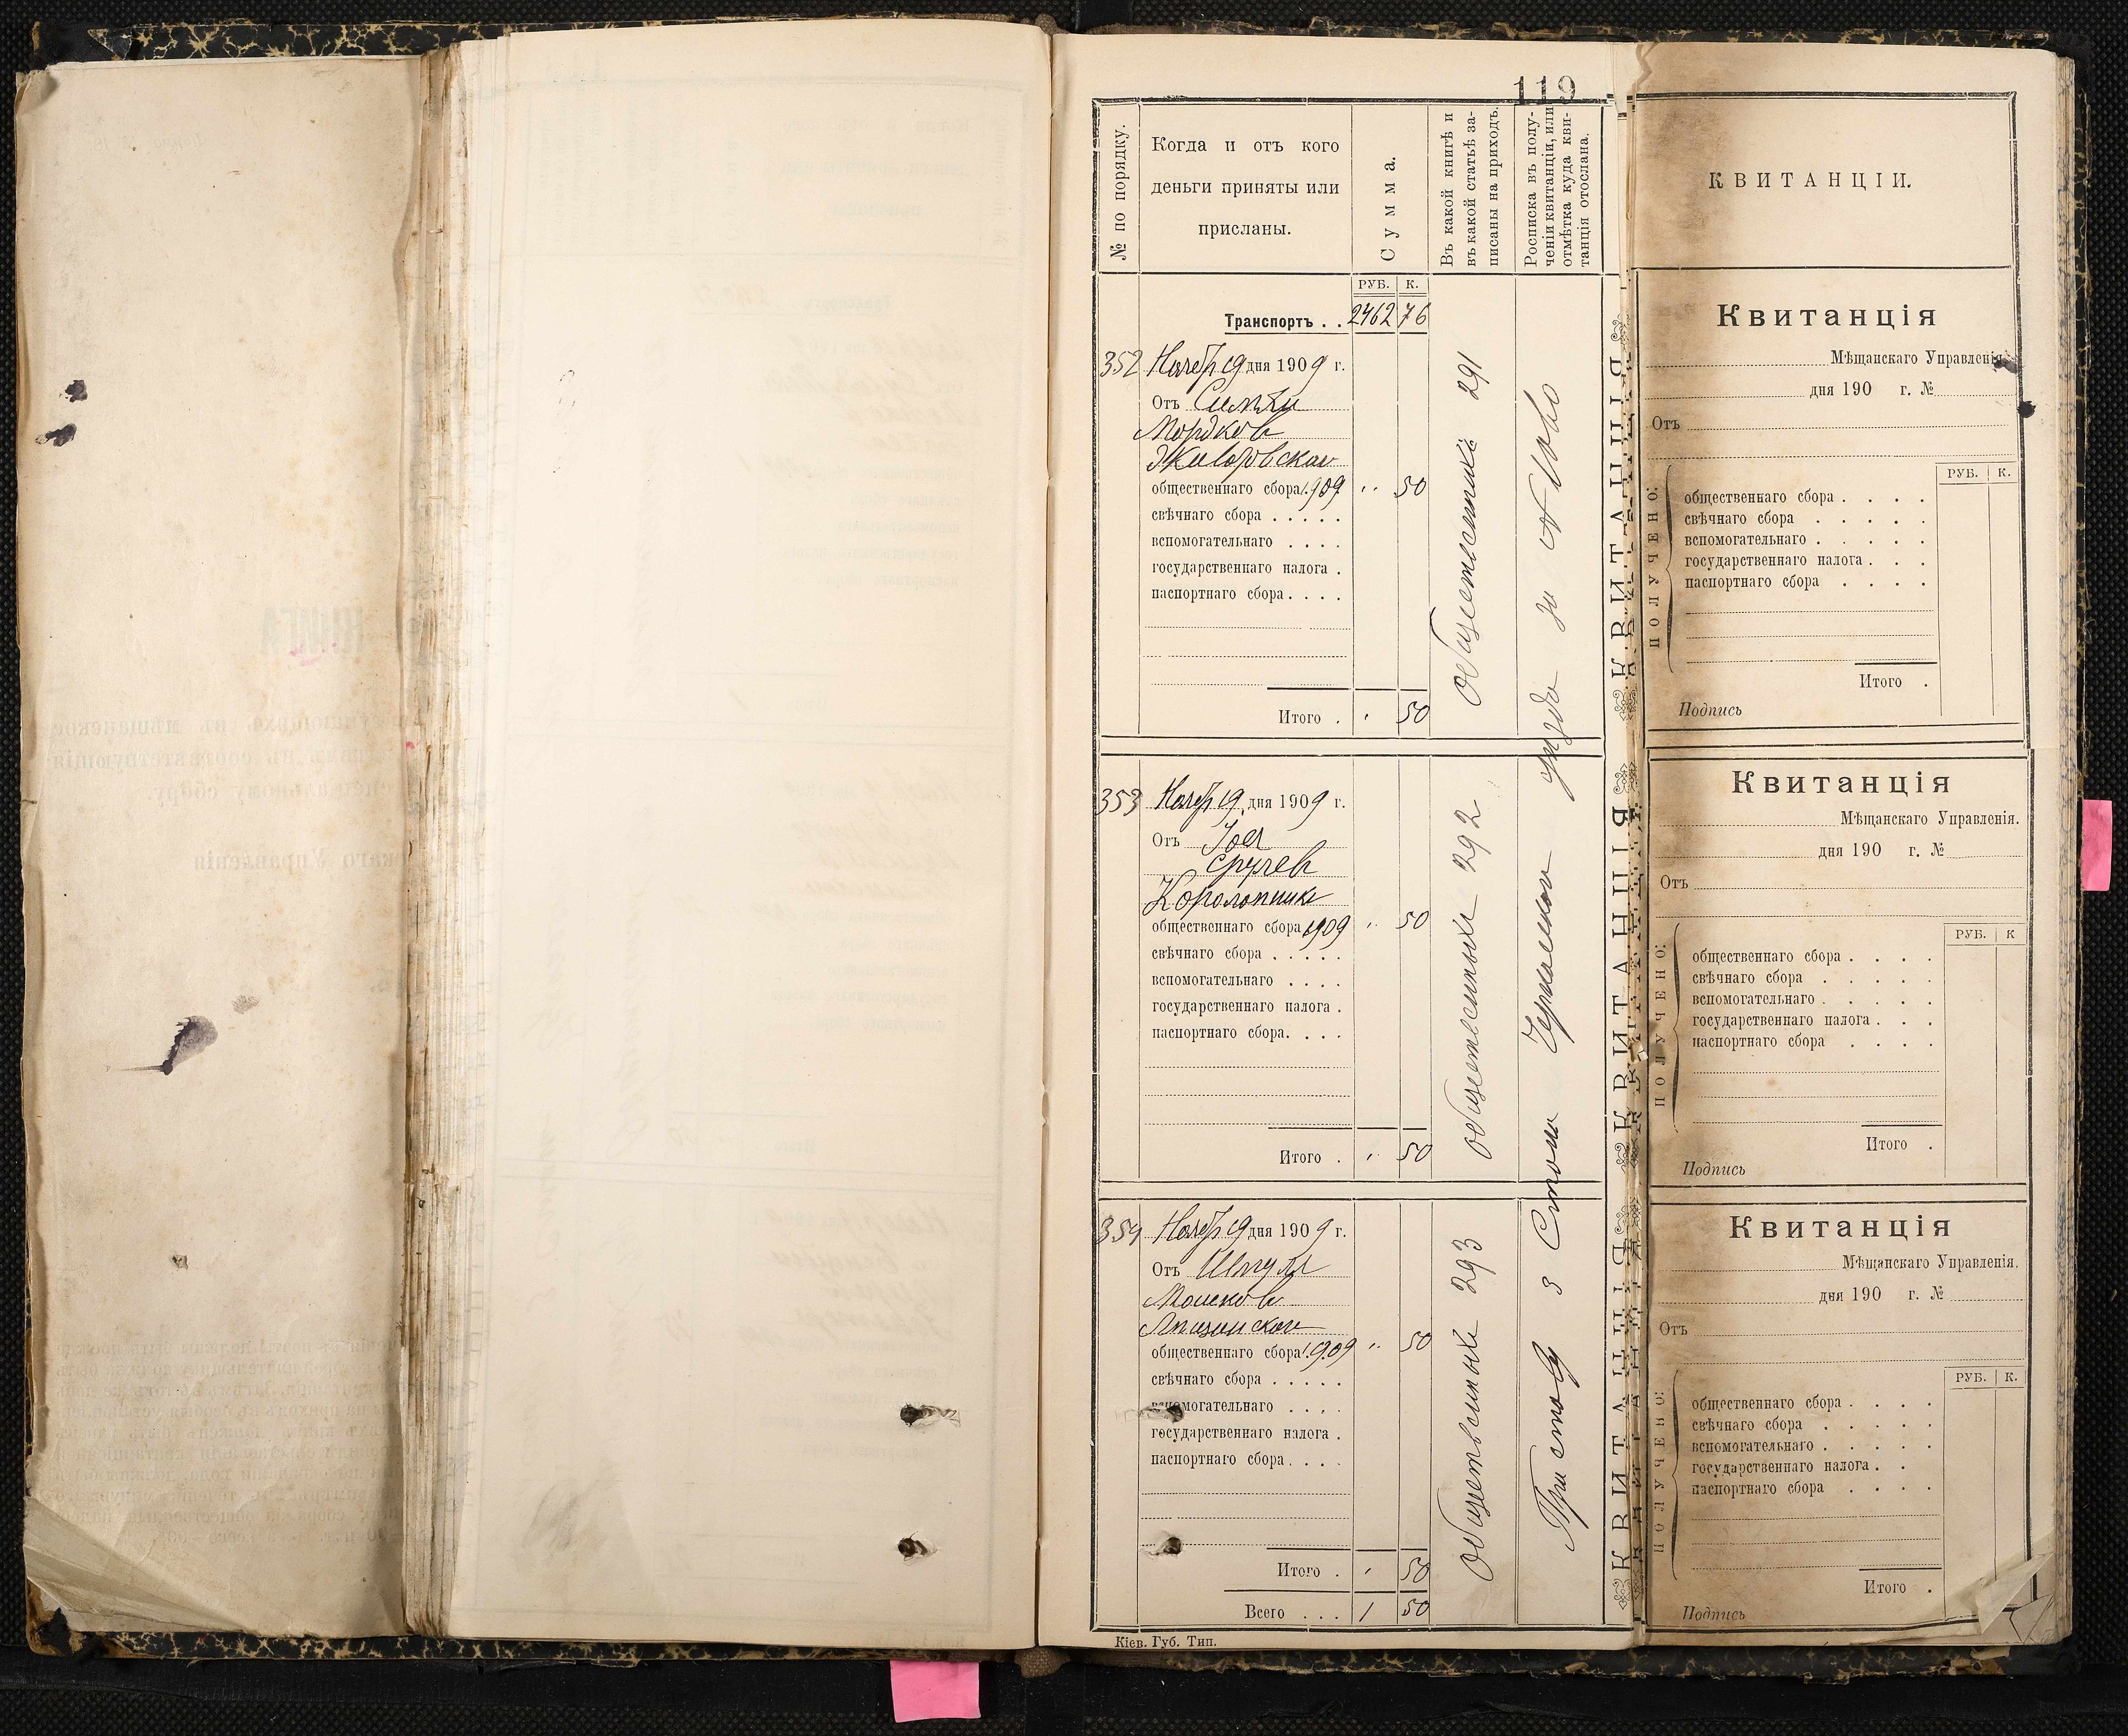 119
№ по порядку.
Когда и отъ кого
деньги приняты или
присланы.
Сумма.
Въ какой книгѣ и
въ какой статьѣ за-
писаны на приходъ.
Росписка въ полу-
ченіи квитанціи, или
отмѣтка куда кви-
танція отослана.
РУБ. К.
Транспортъ . . 2462 76
352 Ноябр 19 дня 1909 г.
Отъ Симхи
Мордков
общественнаго сбора 1909 .. 50
свѣчнаго сбора . . . . .
вспомогательнаго . . . .
государственнаго налога .
паспортнаго сбора . . . .
Итого . . 50
общественныхъ 291
353 Ноябр 19 дня 1909 г.
Отъ
Срулев
общественнаго сбора 1909 .. 50
свѣчнаго сбора . . . . .
вспомогательнаго . . . .
государственнаго налога .
паспортнаго сбора. . . .
Итого . . 50
общественных 292
354 Ноябр 19 дня 1909 г.
Отъ Шмуля
Мошков
общественнаго сбора 1909 .. 50
свѣчнаго сбора . . . . .
вспомогательнаго . . . .
государственнаго налога .
паспортнаго сбора . . . .
Итого . . 50
Всего . . . 1 50
общественных 293
3 Стана
Кіев. Губ. Тип.
КВИТАНЦІЯ КВИТАНЦІЯ КВИТАНЦІЯ
КВИТАНЦІИ.
Квитанція
Мѣщанскаго Управленія.
дня 190 г. №
Отъ
РУБ. К.
ПОЛУЧЕНО:
общественнаго сбора . . . .
свѣчнаго сбора . . . . .
вспомогательнаго . . . . .
государственнаго налога . . .
паспортнаго сбора . . . .
Итого .
Подпись
Квитанція
Мѣщанскаго Управленія.
дня 190 г. №
Отъ
РУБ. К
ПОЛУЧЕНО:
общественнаго сбора . . . .
свѣчнаго сбора . . . . .
вспомогательнаго . . . . .
государственнаго налога . . .
паспортнаго сбора . . . .
Итого .
Подпись
Квитанція
Мѣщанскаго Управленія.
дня 190 г. №
Отъ
РУБ. К.
ПОЛУЧЕНО:
общественнаго сбора . . . .
свѣчнаго сбора . . . . .
вспомогательнаго . . . . .
государственнаго налога . .
паспортнаго сбора . . . .
Итого .
Подпись